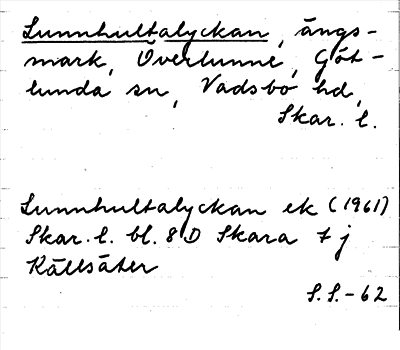 Lunnhultalyckan, ängs-
mark, Överlunne, Göt-
lunda sn, Vadsbo hd,
Skar. l.
Lunnhultalyckan ek (1961)
Skar. l. bl. 8 D Skara 7 j
Källsäter
S.S.-62